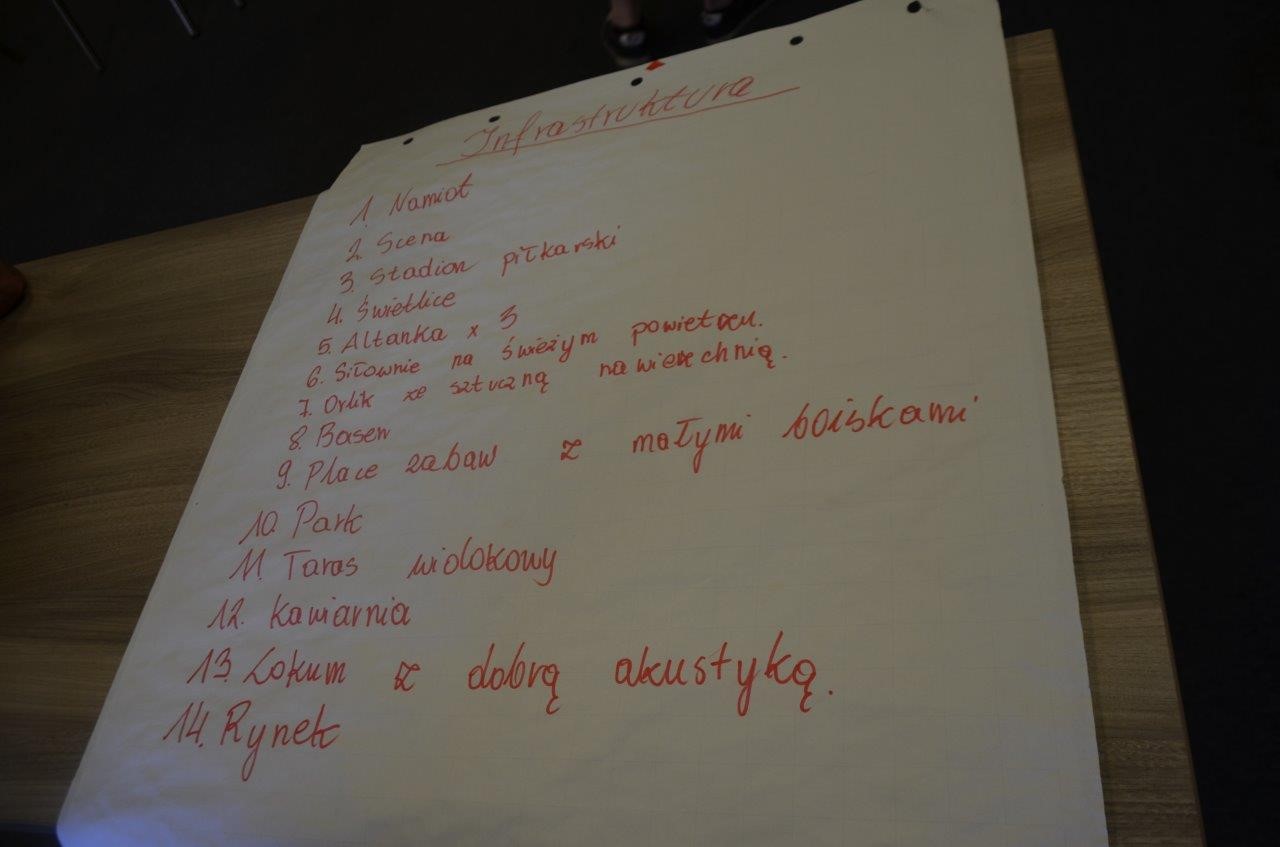 Infrastruktura
1. Namiot
2. Scena
3. Stadion piłkarski
4. Świetlice
5. Altanka x 3
6. Siłownie na świeżym powietrzu.
7. Orlik ze sztuczną nawierzchnią.
8. Basen
9. Place zabaw z małymi boiskami
10. Park
11. Taras widokowy
12. Kawiarnia
13. Lokum z dobrą akustyką.
14. Rynek